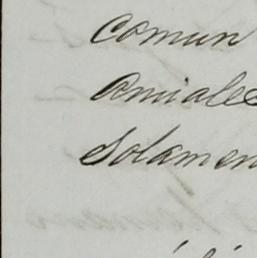 comun
amiale
solamen